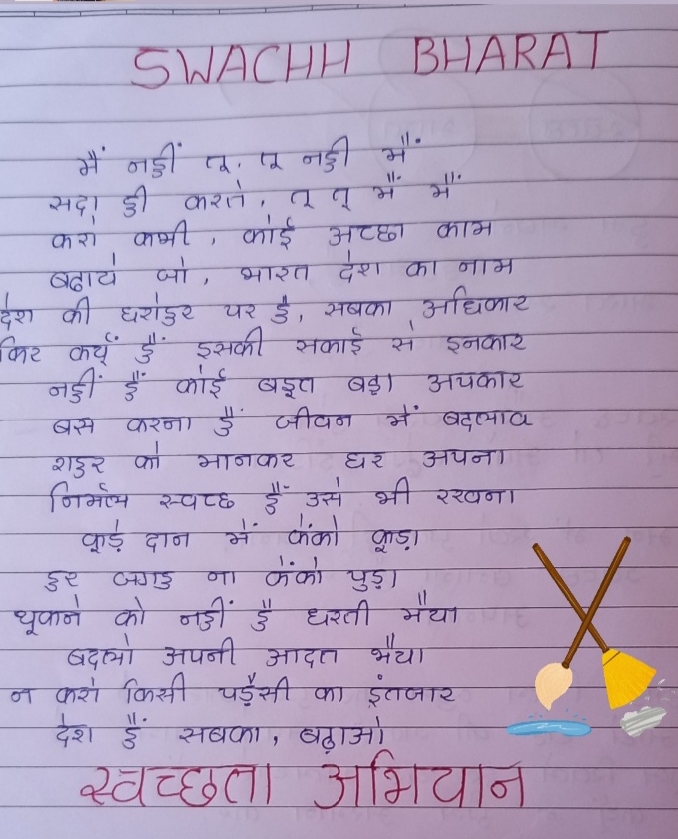 SWACHH BHARAT
मैं नहीं तू, तू नही मैं
सदा ही करते, तू तू मैं मैं
करो कभी, कोई अच्छा काम
बढाये जो, भारत देश का नाम
देश की धरोहर पर है, सबका अधिकार
फिर क्यूं हैं इसकी सफाई से इनकार
नहीं हैं कोई बहुत बड़ा अपकार
बस करना हैं जीवन में बदलाव
शहर को मानकर घर अपना
निर्मल स्वच्छ हैं उसे भी रखना
कूड़े दान में फेंको कूड़ा
हर जगह ना फेंको पुड़ा
थूकने को नहीं है धरती मैया
बदलो अपनी आदत भैया
न करो किसी पड़ैसी का इंतजार
देश हैं सबका, बढ़ाओ
स्वच्छता अभियान